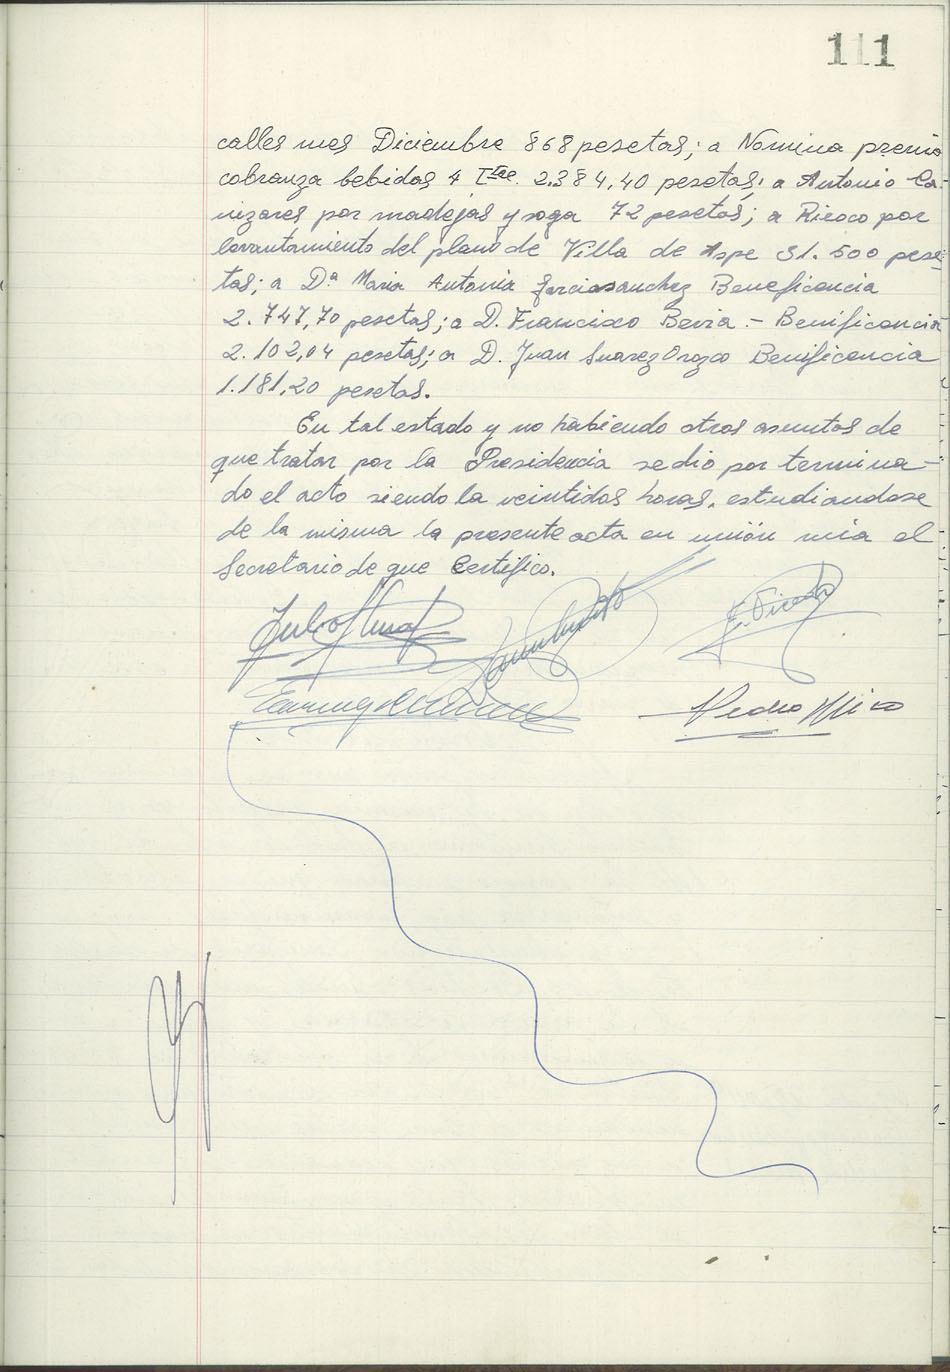 111
calles mes Diciembre 868 pesetas; a Nomina premio
cobranza bebidas 4 Ttre. 2.384,40 pesetas; a Antonio Ca-
ñizares por madejas y soga 72 pesetas; a Rieoco por
levantamiento del plano de Villa de Aspe 31.500 pese-
tas; a Dª Maria Antonia Garciasanchez Beneficencia
2.747,70 pesetas; a D. Francisco Bevia.- Benificencia
2.102,04 pesetas; a D. Juan Suarez Orozco Benificencia
1.181,20 pesetas.
En tal estado y no habiendo otros asuntos de
que tratar por la Presidencia se dio por termina-
do el acto siendo la veintidos horas, estudiandose
de la misma la presente acta en unión mia el
Secretario de que Certifico.
Pedro Mico